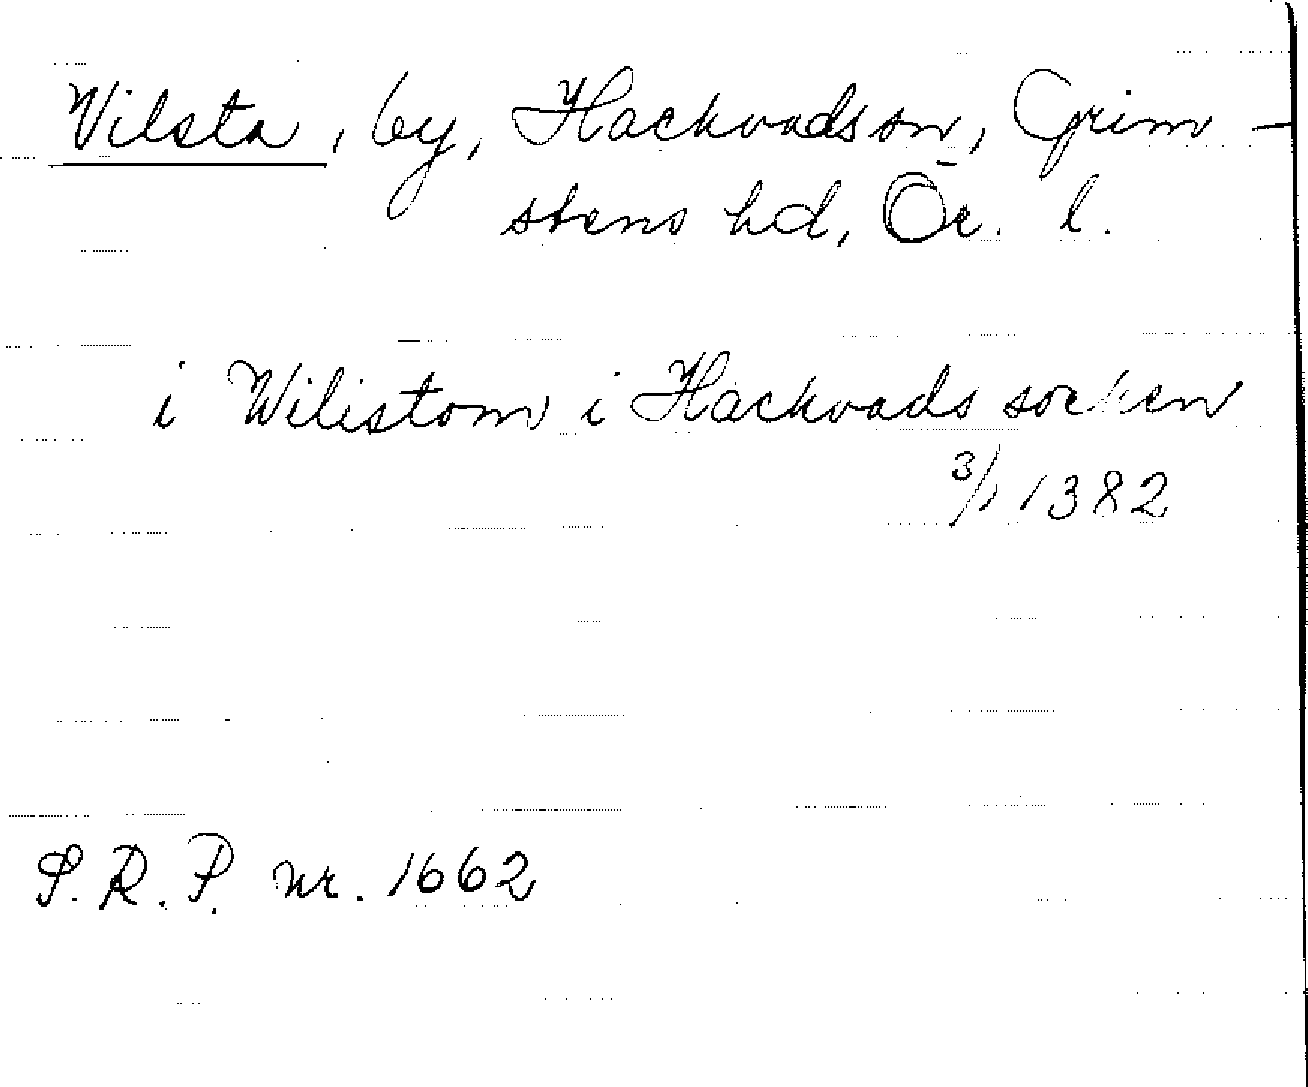 Vilsta, by, Hackvads sn, Grim-
stens hd, Ör. l.
i Wilistom i Hackvads socken
3/1 1382
S.R.P. nr. 1662